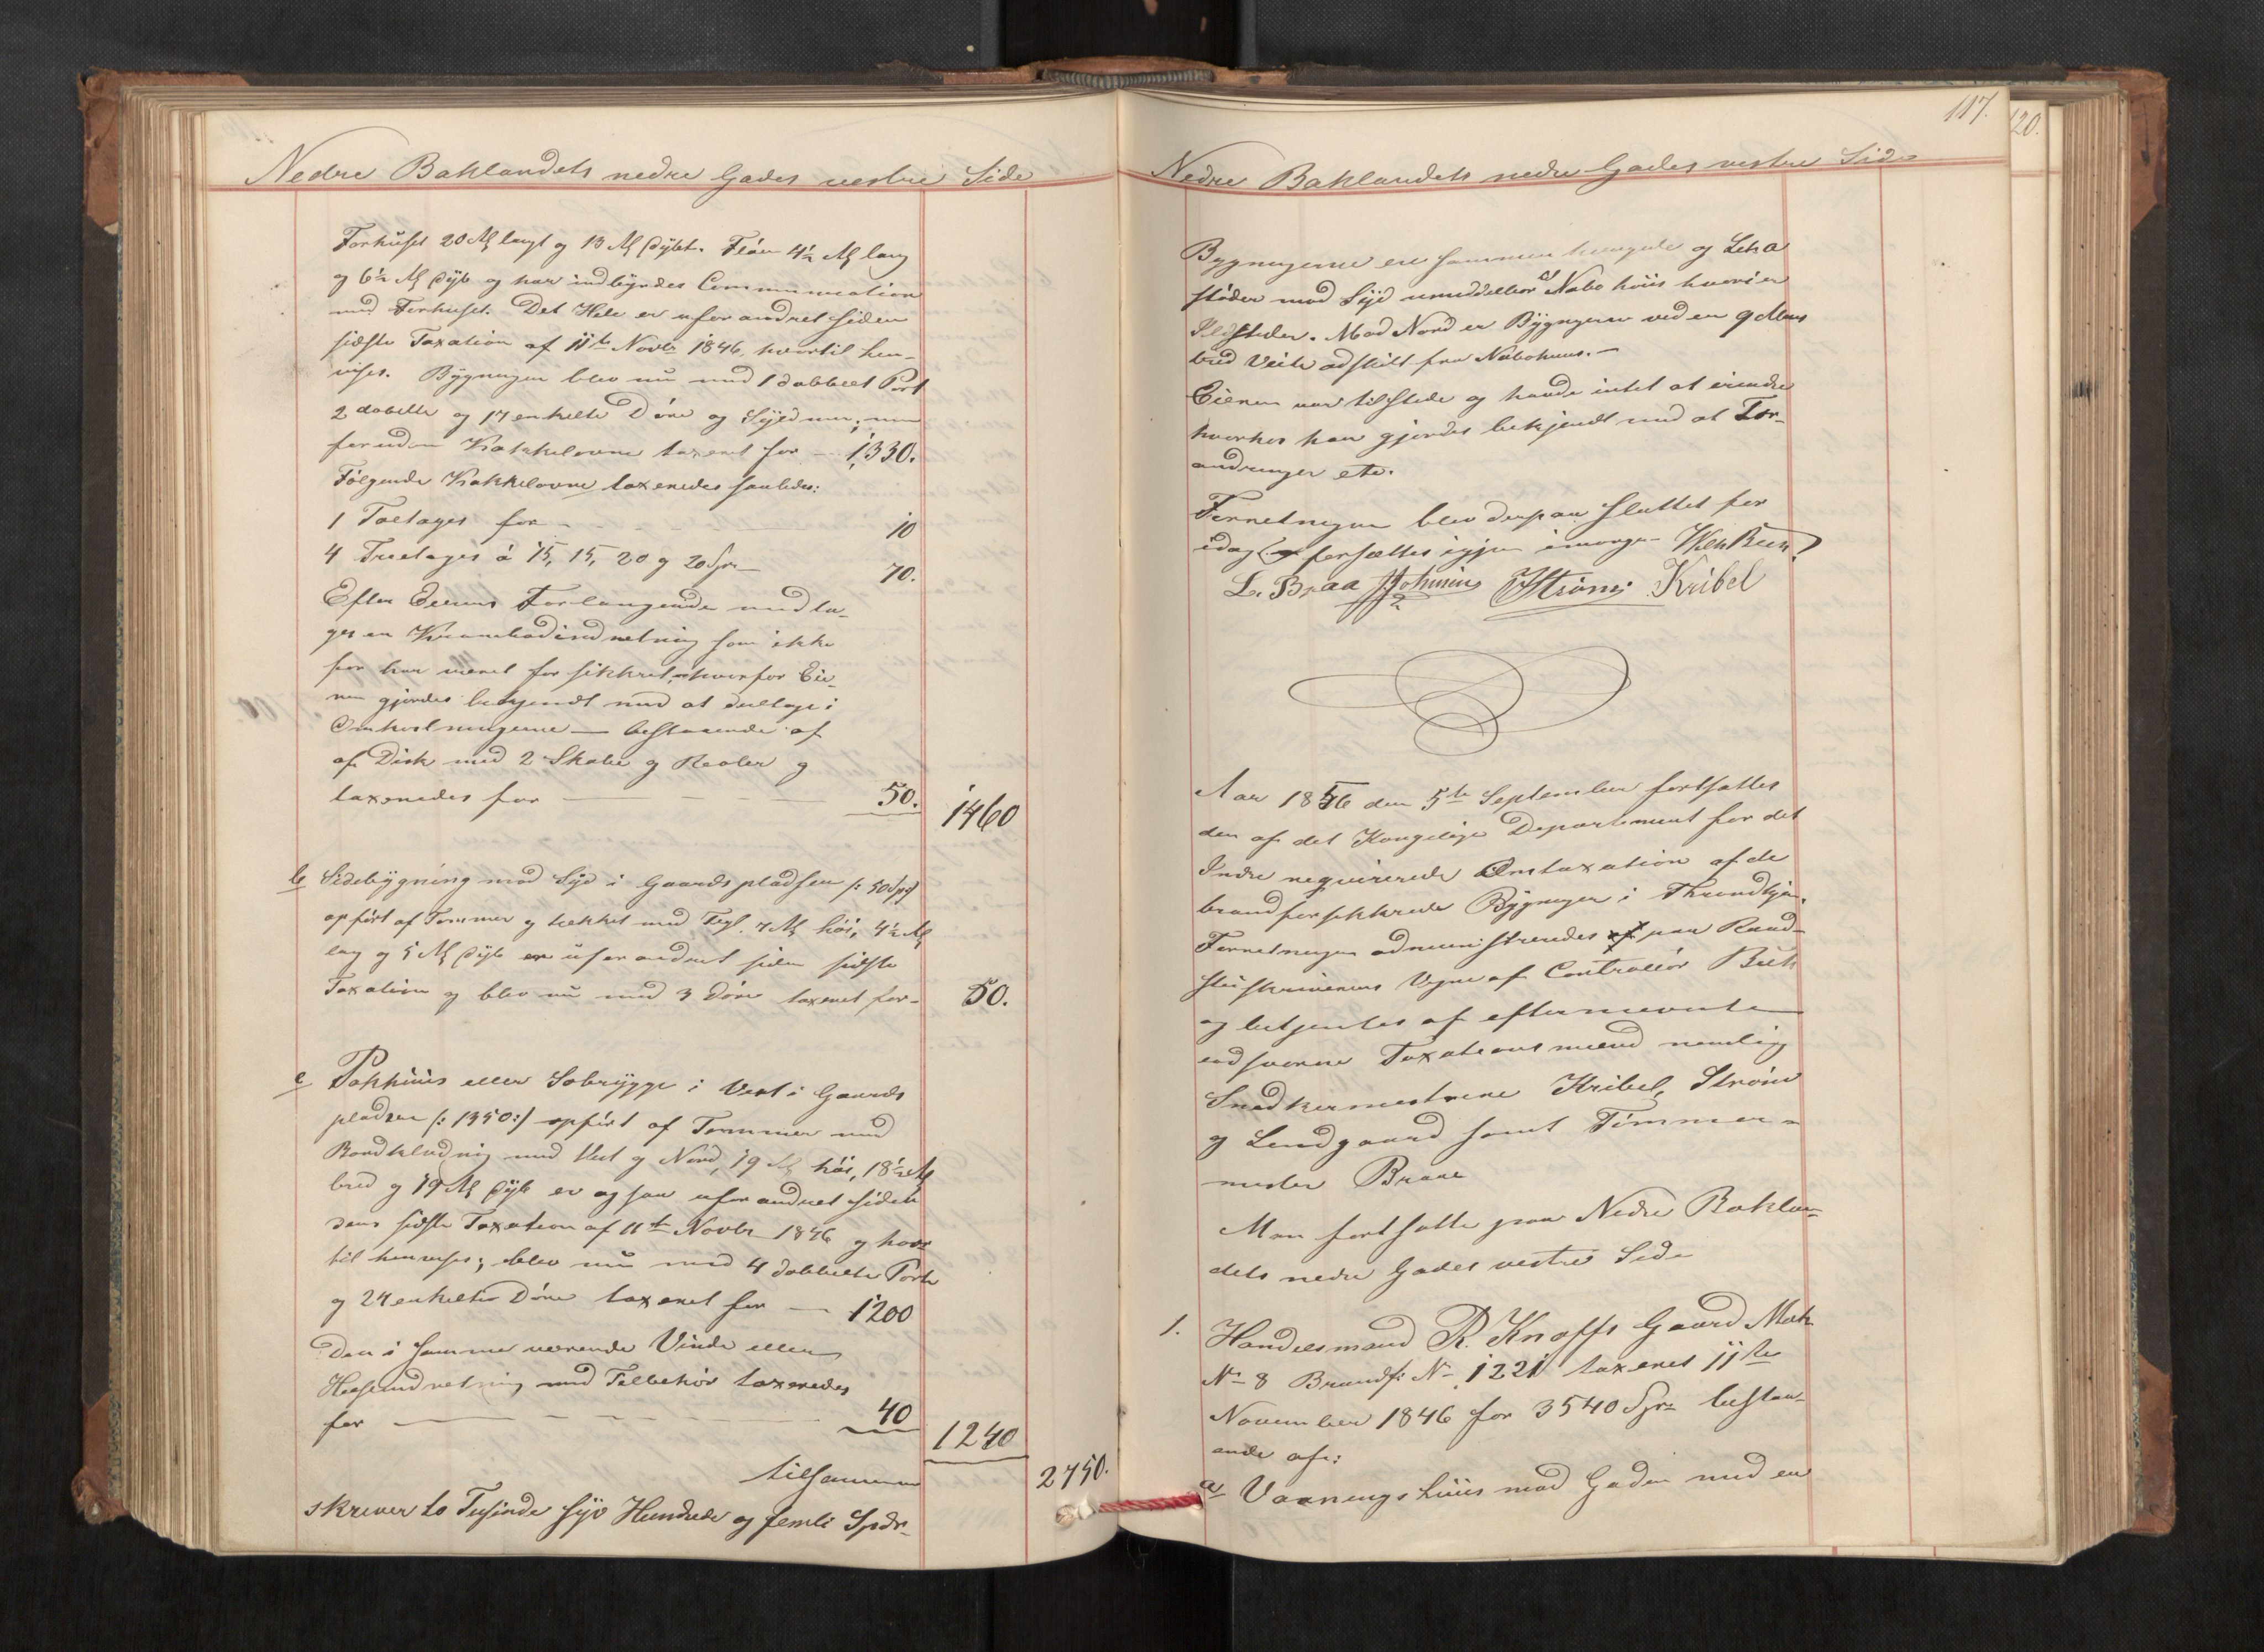 Nedre Baklandets nedre Gades vestre Side
Forhuset 20 Al langt og 13 Al dybt. Fløien 4½ Al lang
og 6½ Al dyb og har indbyrdes Communication
med Forhuset. Det Hele er uforandret siden
sidste Taxation af 11te Novbr 1846, hvortil hen-
vises. Bygningen blev nu med 1 dobbelt Port
2 dobelte og 17 enkelte Døre og
foruden Kakkelovne taxeret for — 1330.
Følgende Kakkelovne taxeredes saaledes:
1 Toetages for - - - 10
4 Treetages á 15, 15, 20 og 20 Spd — 70.
Efter Eierens Forlangende medta-
ges en Krambodindretning som ikke
før har været forsikkret, hvorfor Eie-
ren gjordes bekjendt med at deeltage i
Omkostningerne — bestaaende af
af Disk med 2 Skabe og Reoler og
taxeredes for — 50. 1460
b Sidebygning mod Syd i Gaardspladsen /: 50 Spd :/
opført af Tømmer og tækket med Tegl. 7 Al høi, 4½ Al
lang og 5 Al dyb er uforandret siden sidste
Taxation og blev nu med 3 Døre taxeret for - 50.
c Pakhuus eller Søbrygge i Vest i Gaards
pladsen /: 1350 :/ opført af Tømmer med
Bordklædning mod Vest og Nord, 19 Al høi, 18½ Al
bred og 19 Al dyb er ogsaa uforandret siden
dens sidste Taxation af 11te Novbr 1846 og hvor
til henvises; blev nu med 4 dobbelte Porte
og 24 enkelte Døre taxeret for — 1200
Den i samme værende Vinde eller
Heiseindretning med Tilbehør taxeredes
for — 40 1240
tilsammen 2750.
skriver to Tusinde syv Hundrede og femti Spdr.
117.
120.
Nedre Baklandets nedre Gades vestre Side
Bygningerne ere sammenhængende og Litr a
støder mod Syd umiddelbar til Nabohuus hvori er
Ildsteder. Mod Nord er Bygningerne ved en 9 Alens
bred Veite adskilt fra Nabohuus. —
Eieren var tilstede og havde intet at erindre
hvorhos han gjordes bekjendt med at For-
andringer etc.
Forretningen blev derpaa sluttet for
idag og forsættes igjen imorgen
L. Braa Strøm Kribel
Aar 1856 den 5te September fortsattes
den af det Kongelige Departement for det
Indre reqvirerede Omtaxation af de
brandforsikkrede Bygninger i Throndhjem.
Forretningen administreredes paa Raad-
stueskriverens Vegne af Controllør Buch
og betjentes af efternævnte
edsvorne Taxationsmænd nemlig
Snedkermestrene Kribel, Strøm
og Lundgaard samt Tømmer-
mester Braae
Man fortsatte paa Nedre Baklan-
dets nedre Gades vestre Side
1. Handelsmand R. Knoffs Gaard Mat.
No 8 Brandf: No 1221 taxeret 11te
November 1846 for 3540 Spd bestaa-
ende af:
a Vaaningshuus mod Gaden med en